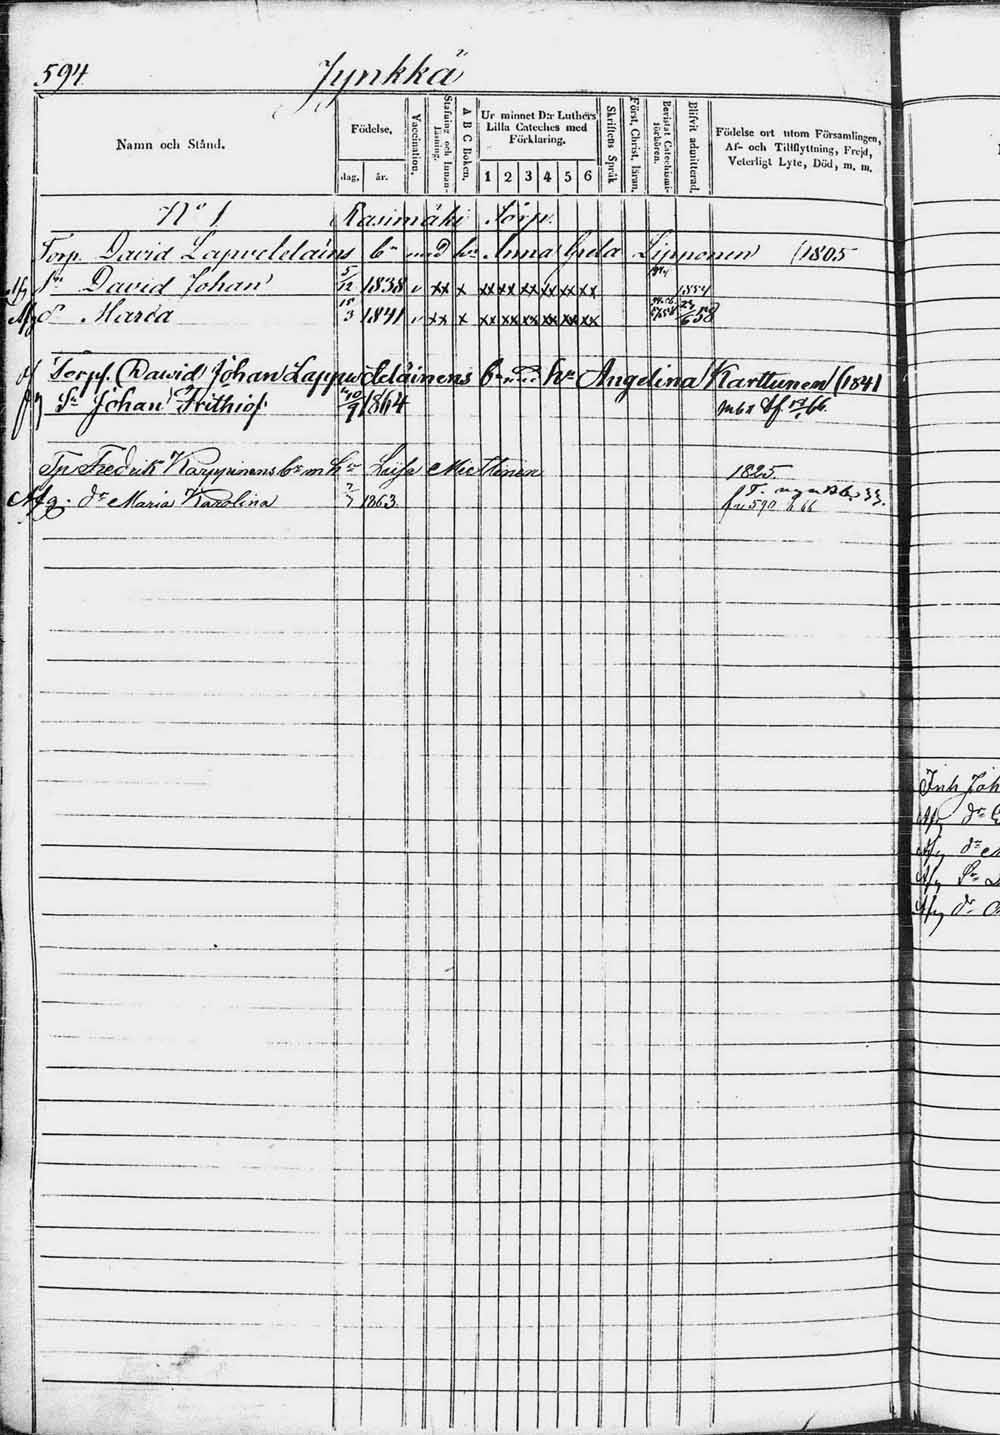 594
Jynkkä
Namn och Stånd.
Födelse,
dag, år.
Vaccination.
Stafning och Innan-Läsning.
A B C Boken.
Ur minnet D:r Luthers
Lilla Cateches med
Förklaring.
1 2 3 4 5 6
Skriftens Språk
Först. Christ. läran.
Bevistat Catechismi-förhören.
Blifvit admitterad.
Födelse ort utom Församlingen,
Af- och Tillflyttning, Frejd,
Veterligt Lyte, Död, m. m.
N:o 1 Rasimäki Torp.
Torp. David Lapveteläins Anna Greta Lipponen (1805
Afg Sn David Johan 5/12 1838 v xx x xx xx xx xx xx xx 1854
Afg d Maria 15/3 1841 v xx x xx xx xx xx xx xx 58
Torpf. David Johan Lappveteläinens hn Angelina Karttunen (1841
Sn Johan Frithiof 1864
Fredrik Karppinens Lusa Miettinen 1825.
Afg. dr Maria Karolina 1863.
590 66
Inh Joh
Afg dr
Afg dr
Afg Sn
Afg dr